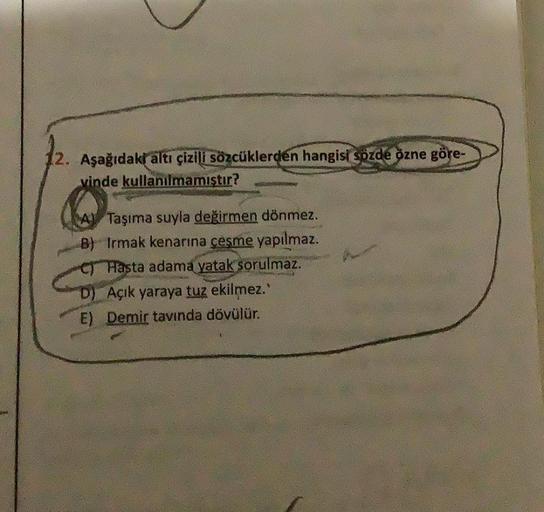 12. Aşağıdaki altı çizili sözcüklerden hangisi sözde özne göre-
vinde kullanılmamıştır?
A) Taşıma suyla değirmen dönmez.
B) Irmak kenarına çeşme yapılmaz.
C) Hasta adama yatak sorulmaz.
D) Açık yaraya tuz ekilmez.
E) Demir tavında dövülür.